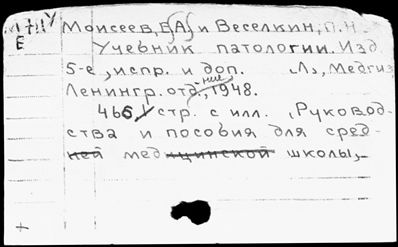 Моисеев, Е(А) и Веселкин, П.Н.
Е Учебник патологии. Изд.
5-е, испр. и доп. Л., Медгиз
ние
Ленингр. отд., 1948.
466 стр. с илл. (Руковод-
ства и пособия для сред-
ней медицинской школы)
+